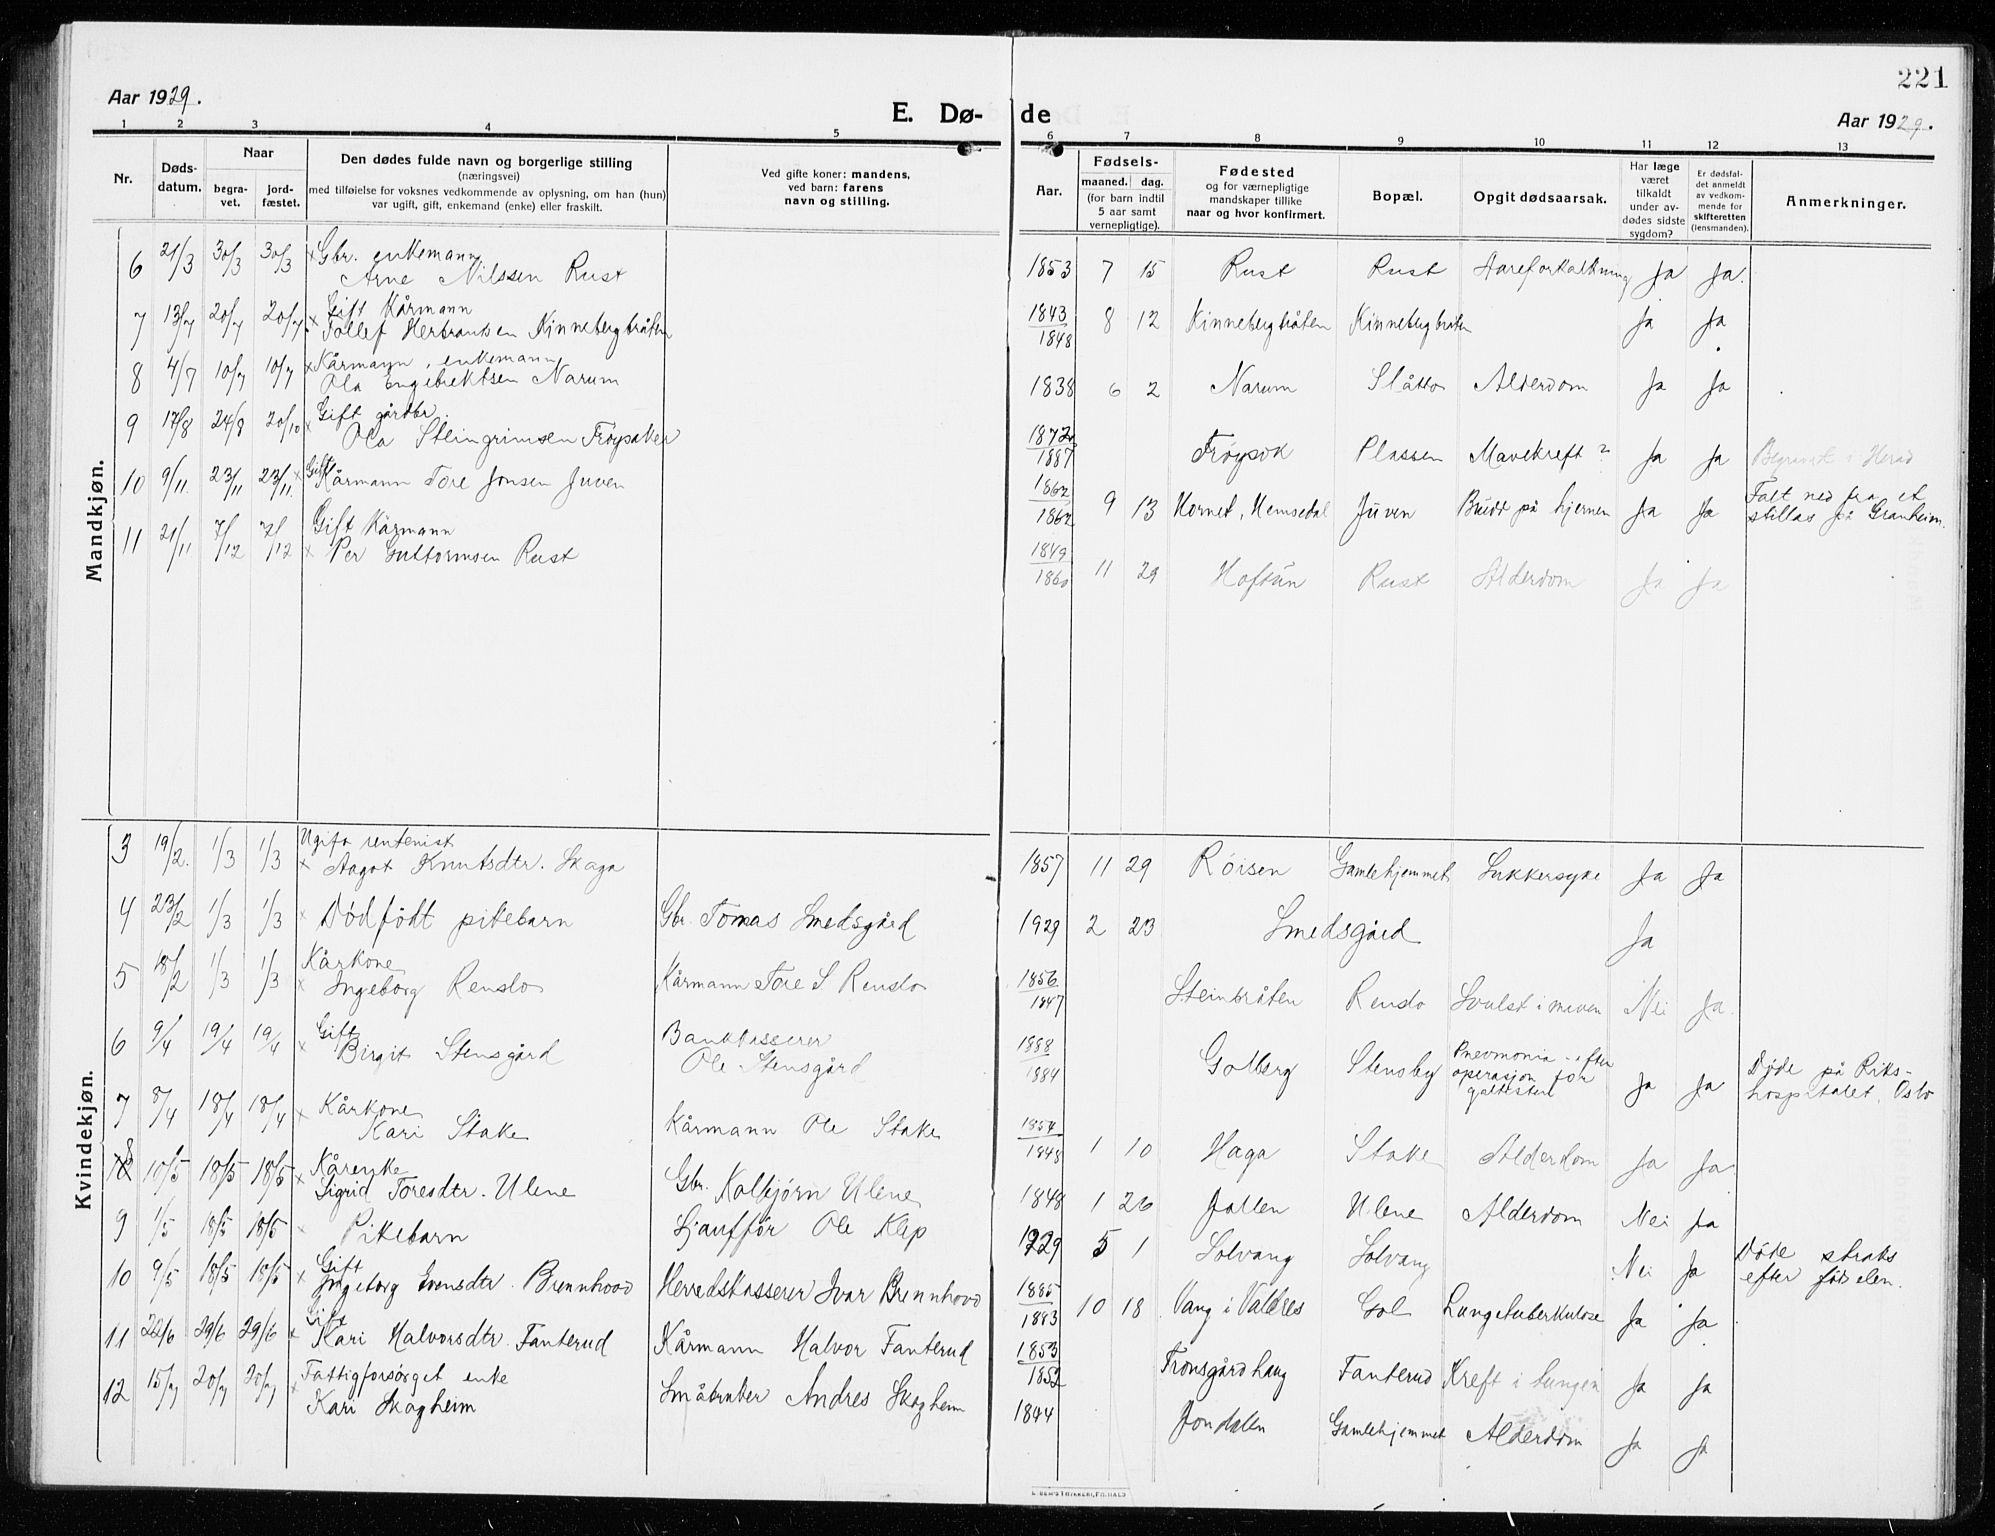 221
Aar 1929.
E. Dø-
de
Aar 1929.
1 2 3 4 5 6 7 8 9 10 11 12 13
Nr.
Døds-
datum.
Naar
begra-
vet.
jord-
fæstet.
Den dødes fulde navn og borgerlige stilling
(næringsvei)
med tilføielse for voksnes vedkommende av oplysning, om han (hun)
var ugift, gift, enkemand (enke) eller fraskilt.
Ved gifte koner: mandens,
ved barn: farens
navn og stilling.
Aar.
Fødsels-
maaned. dag.
(for barn indtil
5 aar samt
vernepligtige).
Fødested
og for værnepligtige
mandskaper tillike
naar og hvor konfirmert.
Bopæl.
Opgit dødsaarsak.
Har læge
været
tilkaldt
under av-
dødes sidste
sygdom?
Er dødsfal-
det anmeldt
av vedkom-
mende for
skifteretten
(lensmanden).
Anmerkninger.
Mandkjøn.
6 21/3 30/3 30/3 × Gbr. enkemann
Arne Nilssen Rust 1853 7 15 Rust Rust Aareforkalkning Ja Ja.
7 13/7 20/7 20/7 × Gift Kårmann
Tollef Herbrantsen Kinnebergbråten 1843/1848 8 12 Kinnebergbråten Kinnebergbråten Ja Ja
8 4/7 10/7 10/7 × Kårmann, enkemann
Ola Engebrektsen Narum 1838 6 2 Narum Slåtto Alderdom Ja Ja
9 17/8 24/8 20/10 × Gift gårdbr.
Ola Steingrimsen Frøysaker 1872/1887 Frøysok Plassen Mavekreft? Ja Ja Begravet i Herad
10 9/11 23/11 23/11 × Gift
Kårmann Tore Jonsen Juven 1862/1862 9 13 Hornet, Hemsedal Juven Brudd på hjernen Ja Ja Falt ned fra et
stillas på Granheim.
11 21/11 7/12 7/12 Gift Kårmann
× Per Guttormsen Rust 1849/1860 11 29 Hoftun Rust Alderdom Ja Ja
Kvindekjøn.
3 19/2. 1/3 1/3 Ugift rentenist
× Aagot Knutsdtr. Skaga 1857 11 29 Røisen Gamlehjemmet Sukkersyke Ja Ja
4 23/2 1/3 1/3 × Dødfødt pikebarn Gbr. Tomas Smedsgård 1929 2 23 Smedsgård Ja
5 18/2 1/3 1/3 Kårkone
× Ingeborg Renslo Kårmann Tore S Renslo 1856/1847 Steinbråten Renslo Svulst i maven Nei Ja.
6 9/4 19/4 19/4 Gift
× Birgit Stensgård Bankkasserer
Ole Stensgård 1888/1884 Golberg Stensby Pneumonia efter
operasjon for
galdesten Ja Ja Døde på Riks-
hospitalet, Oslo
7 8/4 18/4 18/4 × Kårkone
Kari Stake Kårmann Ole Stake 1854/1848 1 10 Haga Stake Alderdom Ja Ja
8 10/5 18/5 18/5 × Kårenke
Sigrid Toresdtr. Ulene Gbr. Kolbjørn Ulene 1848 1 26 Jallen Ulene Alderdom Nei Ja
9 1/5 18/5 18/5 × Pikebarn Sjauffør Ole Klep 1929 5 1 Solvang Solvang Nei Ja Døde straks
efter fødselen.
10 9/5 18/5 18/5 × Gift
Ingeborg Ivensdtr. Brennhovd Herredskasserer Ivar Brennhovd 1885/1883 10 18 Vang i Valdres Gol Lungetuberkulose Ja Ja
11 22/6 29/6 29/6 × Gift
Kari Halvorsdtr. Fanterud Kårmann Halvor Fanterud 1853/1852 Fronsgårdhaug Fanterud Kreft i Lungen Ja Ja
12 15/7 20/7 20/7 × Fattigforsørget enke
Kari Skagheim Småbruker Andres Skagheim 1844 Jondalen Gamlehjemmet Alderdom Ja Ja